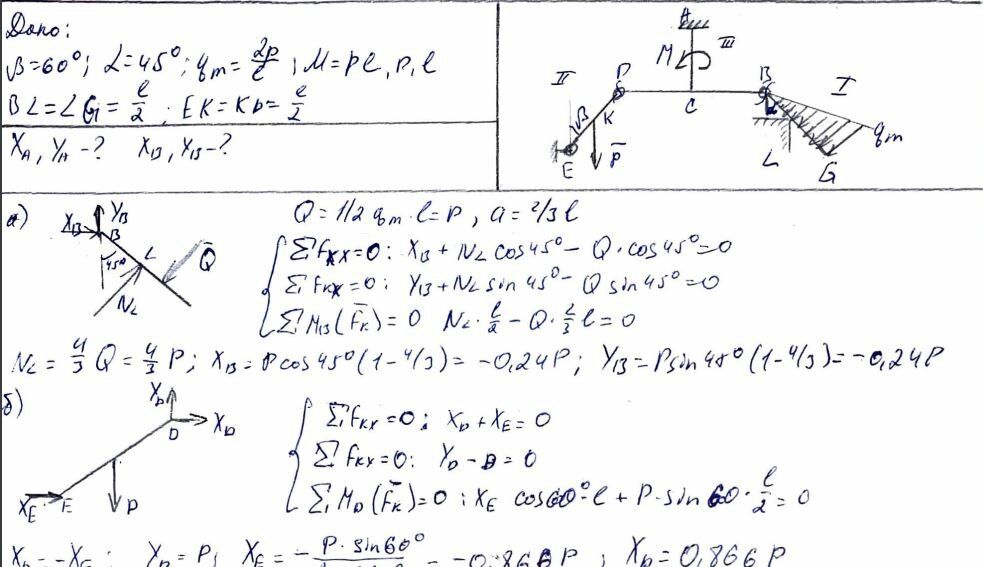 Дано:
β=60°; α=45°; qm = 2P/l; M=Pl, P, l
BL = LG = l/2; EK = KD = l/2
XA, YA - ? XB, YB - ?
A
M
III
II
D
B
I
C
K
β
P̄
E
L
G
qm
а)
YB
XB
B
45°
L
Q̄
NL
Q = 1/2 qm·l = P, a = 2/3 l
ΣFkx=0: XB + NL cos45° - Q·cos45° = 0
ΣFkx=0: YB + NL sin 45° - Q sin 45° = 0
ΣMB(F̄k) = 0 NL·l/2 - Q·2/3 l = 0
NL = 4/3 Q = 4/3 P; XB = P cos 45° (1 - 4/3) = -0,24P; YB = P sin 45° (1 - 4/3) = -0,24P
б)
YD
XD
D
XE
E
P
ΣFkx = 0: XD + XE = 0
ΣFkx = 0: YD - P = 0
ΣMD(F̄k) = 0: XE cos 60°·l + P·sin 60·l/2 = 0
XD = -XE; YD = P; XE = - P·sin 60° = -0,866P; XD = 0,866P